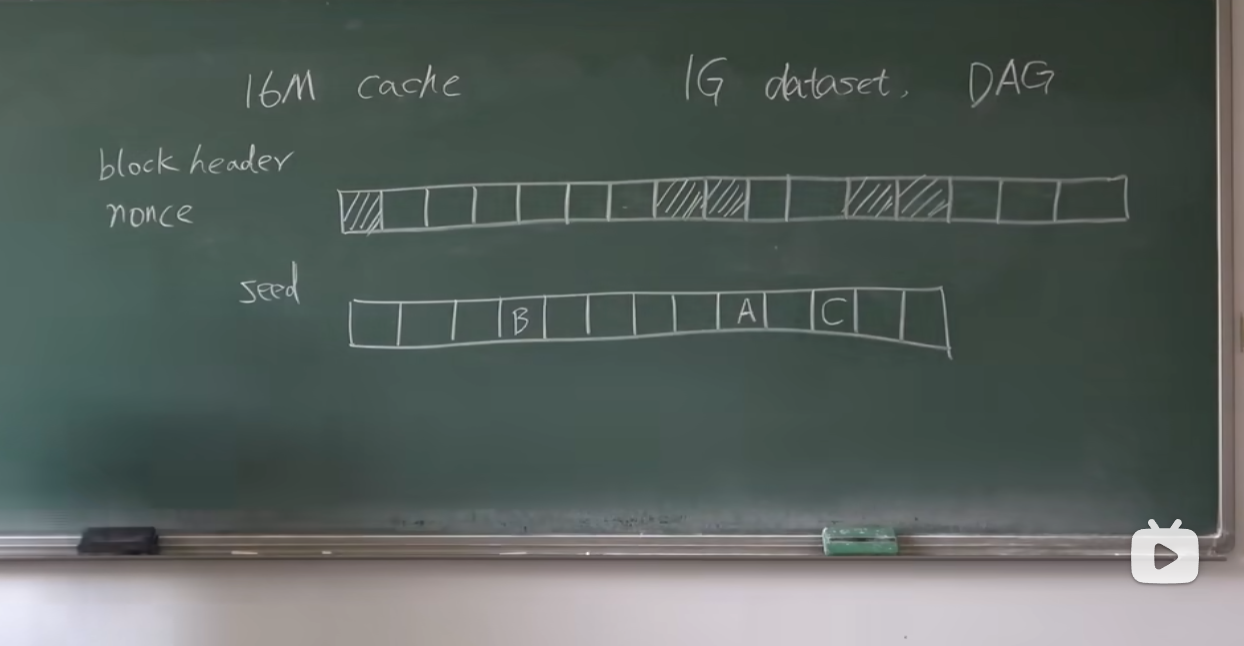 16M cache
1G dataset, DAG
block header
nonce
seed
B A C